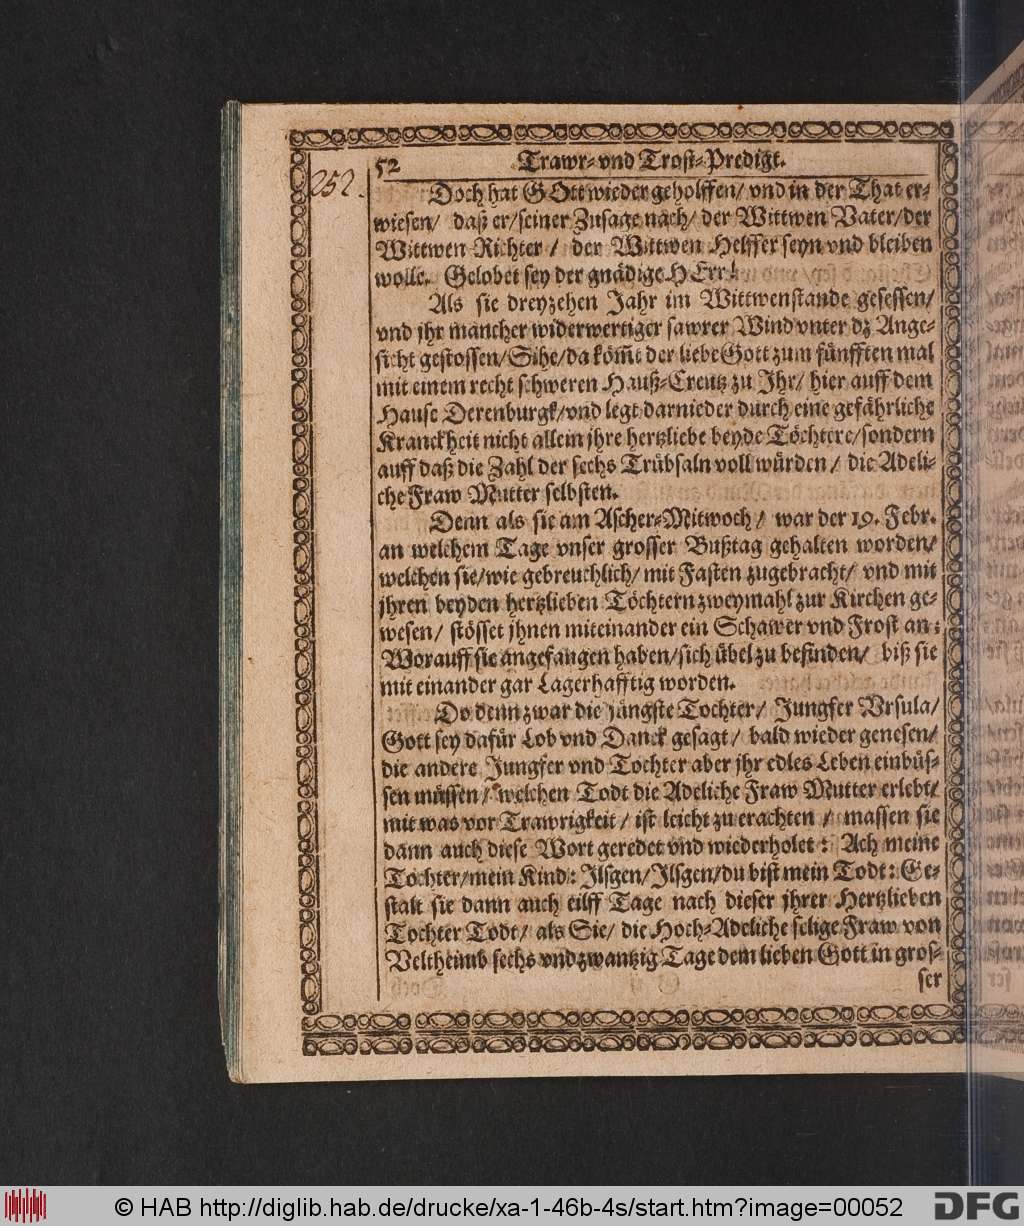 52 Trawr-vnd Trost-Predigt.
252.
Doch hat GOtt wieder geholffen/ vnd in der That er-
wiesen/ daß er/seiner Zusage nach/ der Wittwen Vater/der
Wittwen Richter/ der Wittwen Helffer seyn vnd bleiben
wolle. Gelobet sey der gnädige HErr!
Als sie dreyzehen Jahr im Wittwenstande gesessen/
vnd jhr mancher widerwertiger sawrer Wind vnter dz Ange-
sicht gestossen/Sihe/da köm̃t der liebe Gott zum fünfften mal
mit einem recht schweren Hauß-Creutz zu Ihr/ hier auff dem
Hause Derenburgk/vnd legt darnieder durch eine gefährliche
Kranckheit nicht allein jhre hertzliebe beyde Töchtere/sondern
auff daß die Zahl der sechs Trübsaln voll würden/ die Adeli-
che Fraw Mutter selbsten.
Denn als sie am Ascher-Mitwoch/ war der 19. Febr.
an welchem Tage vnser grosser Bußtag gehalten worden/
welchen sie/wie gebreuchlich/ mit Fasten zugebracht/ vnd mit
jhren beyden hertzlieben Töchtern zweymahl zur Kirchen ge-
wesen/ stösset jhnen miteinander ein Schawer vnd Frost an:
Worauff sie angefangen haben/sich übel zu befinden/ biß sie
mit einander gar Lagerhafftig worden.
Do denn zwar die jüngste Tochter/ Jungfer Vrsula/
Gott sey dafür Lob vnd Danck gesagt/ bald wieder genesen/
die andere Jungfer vnd Tochter aber jhr edles Leben einbüs-
sen müssen/ welchen Todt die Adeliche Fraw Mutter erlebt/
mit was vor Trawrigkeit/ ist leicht zu erachten/ massen sie
dann auch diese Wort geredet vnd wiederholet: Ach meine
Tochter/mein Kind: Ilsgen/Ilsgen/du bist mein Todt: Ge-
stalt sie dann auch eilff Tage nach dieser jhrer Hertzlieben
Tochter Todt/ als Sie/ die Hoch-Adeliche selige Fraw von
Veltheimb sechs vnd zwantzig Tage dem lieben Gott in gros-
ser
© HAB http://diglib.hab.de/drucke/xa-1-46b-4s/start.htm?image=00052
DFG